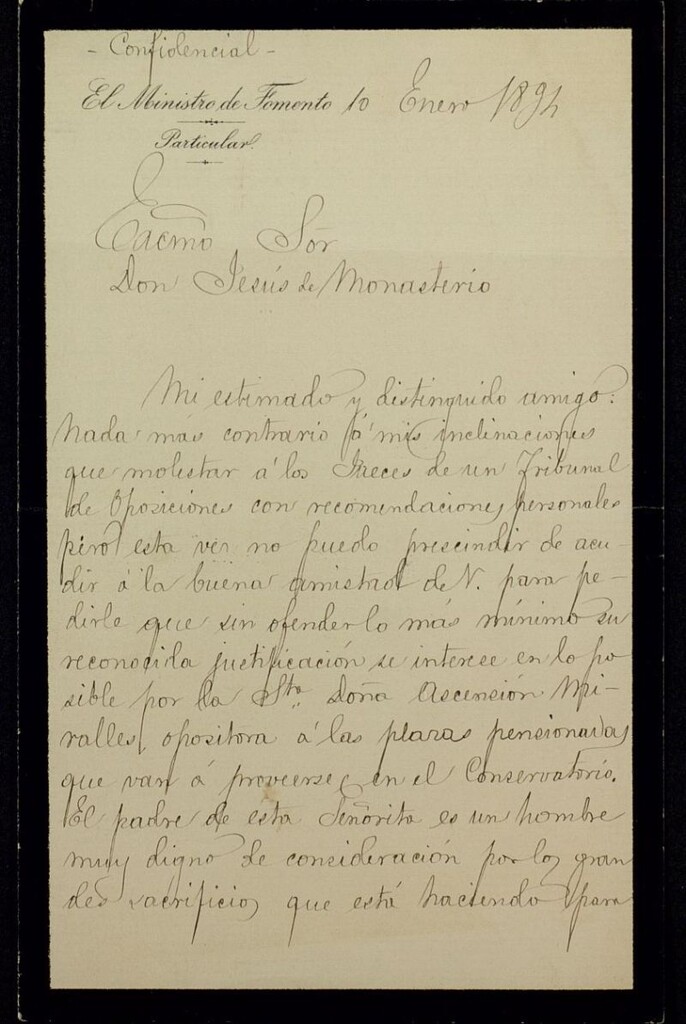 - Confidencial -
El Ministro de Fomento 10 Enero 1894
Particular.
Excmo Sör
Don Jesús de Monasterio
Mi estimado y distinguido amigo:
Nada más contrario á mis inclinaciones
que molestar á los Jueces de un Tribunal
de Oposiciones con recomendaciones personales
pero esta vez no puedo prescindir de acu-
dir á la buena amistad de V. para pe-
dirle que sin ofender lo más mínimo su
reconocida justificación se interese en lo po
sible por la Sta. Doña Ascensión Mi-
ralles, opositora á las plazas pensionadas
que van á proveerse en el Conservatorio.
El padre de esta Señorita es un hombre
muy digno de consideración por los gran
des sacrificios que está haciendo para